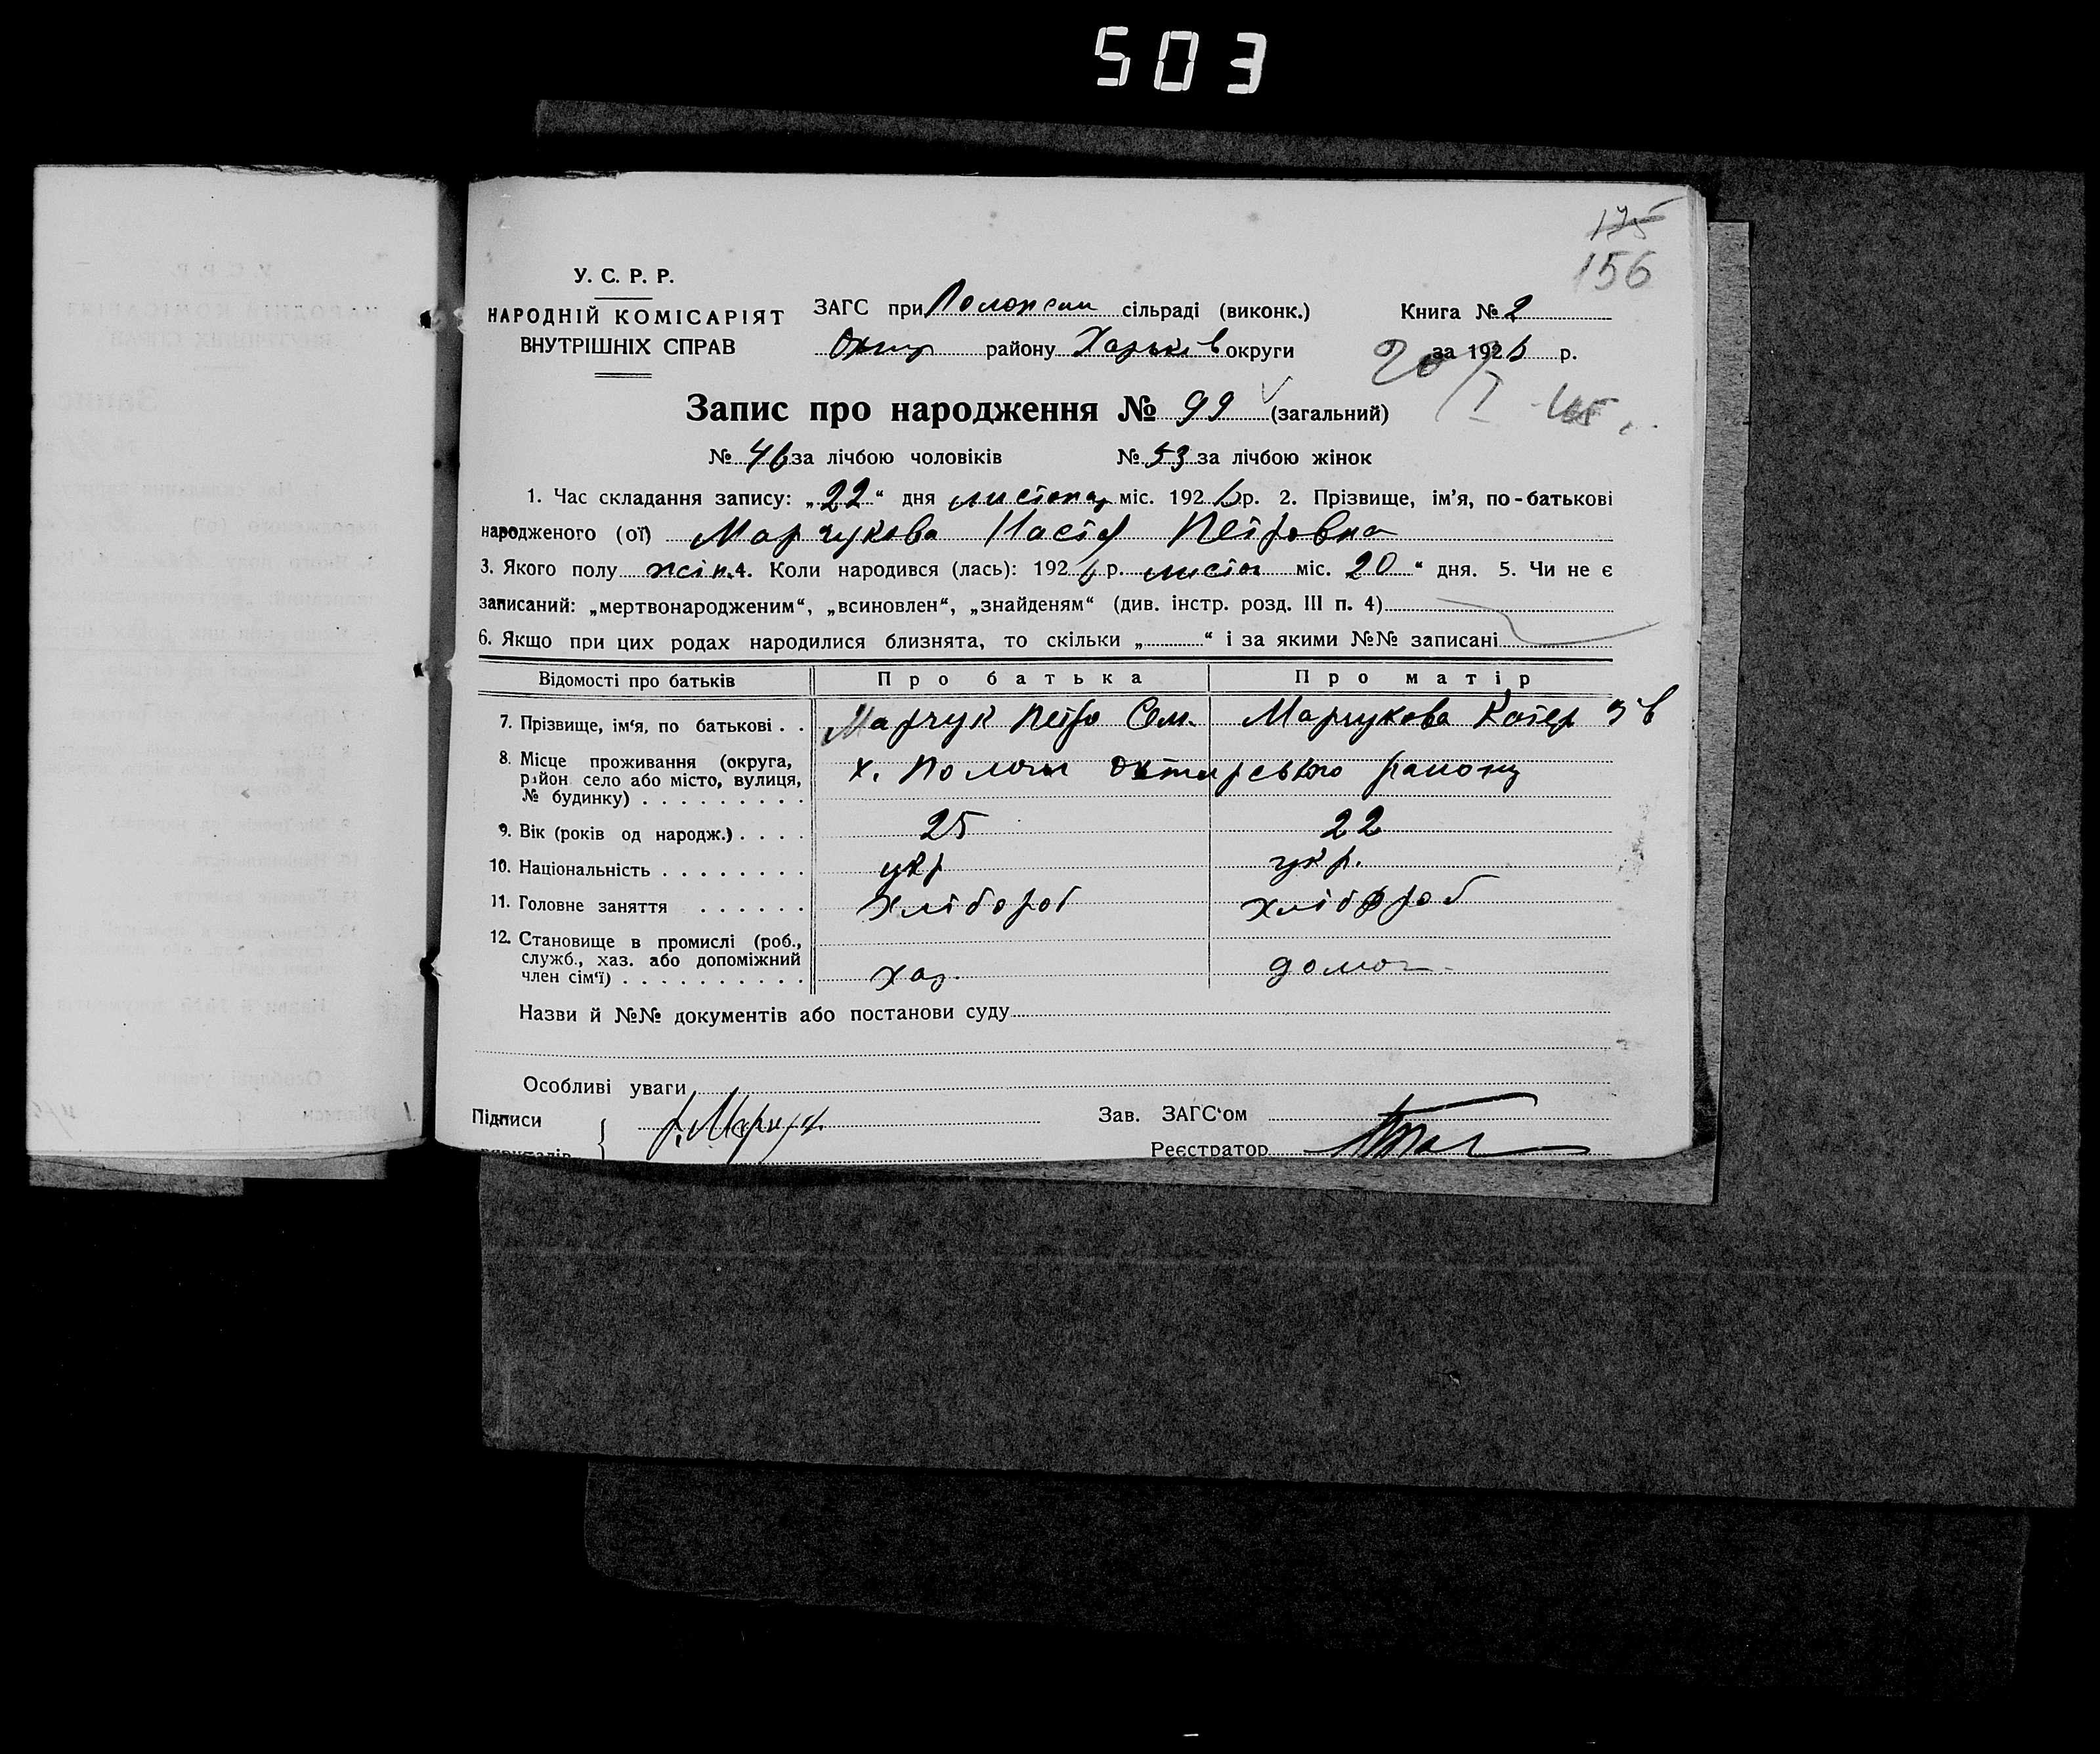 503
175
156
У. С. Р. Р.
НАРОДНІЙ КОМІСАРІЯТ
ВНУТРІШНІХ СПРАВ
ЗАГС при сільраді (виконк.)
Охтир району Харьків округи
Книга № 2
за 1926 р.
20/I
Запис про народження № 99 (загальний)
№ 46 за лічбою чоловіків № 53 за лічбою жінок
1. Час складання запису: „22“ дня листопад міс. 1926 р. 2. Прізвище, ім'я, по-батькові
народженого (ої) Марчукова Настя Петровна
3. Якого полу жін. 4. Коли народився (лась): 1926 р. листоп міс. 20“ дня. 5. Чи не є
записаний: „мертвонародженим“, „всиновлен“, „знайденям“ (див. інстр. розд. III п. 4)
6. Якщо при цих родах народилися близнята, то скільки „ “ і за якими №№ записані
Відомості про батьків Про батька Про матір
7. Прізвище, ім'я, по батькові . . Марчук Петро Сем. Марчукова Катер
8. Місце проживання (округа,
район село або місто, вулиця,
№ будинку) . . . . . . . . . х. Охтирського району
9. Вік (років од народж.) . . . . 25 22
10. Національність . . . . . . . . укр укр.
11. Головне заняття . . . . . . хлібороб хлібороб
12. Становище в промислі (роб.,
служб., хаз. або допоміжний
член сім'ї) . . . . . . . . . . хаз. домог
Назви й №№ документів або постанови суду
Особливі уваги
Підписи Зав. ЗАГС'ом
Реєстратор